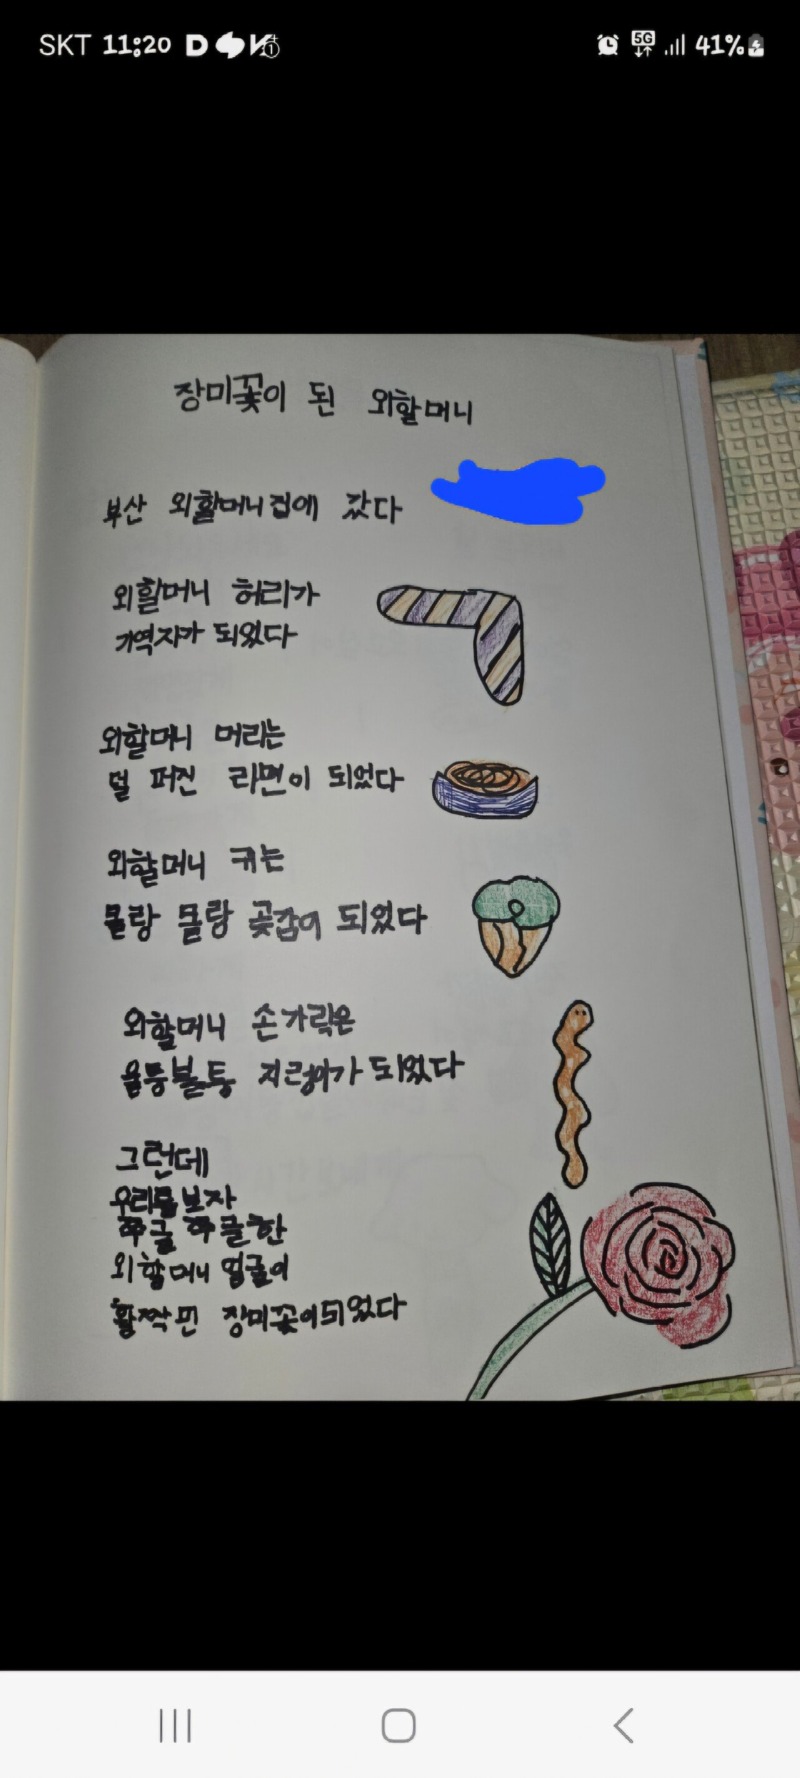 SKT 11:20
5G 41%
장미꽃이 된 외할머니
부산 외할머니집에 갔다
외할머니 허리가
기역자가 되었다
외할머니 머리는
덜 퍼진 라면이 되었다
외할머니 귀는
몰랑 몰랑 곶감이 되었다
외할머니 손가락은
울퉁불퉁 지렁이가 되었다
그런데
우리를 보자
쭈글 쭈글한
외할머니 얼굴이
활짝 핀 장미꽃이되었다